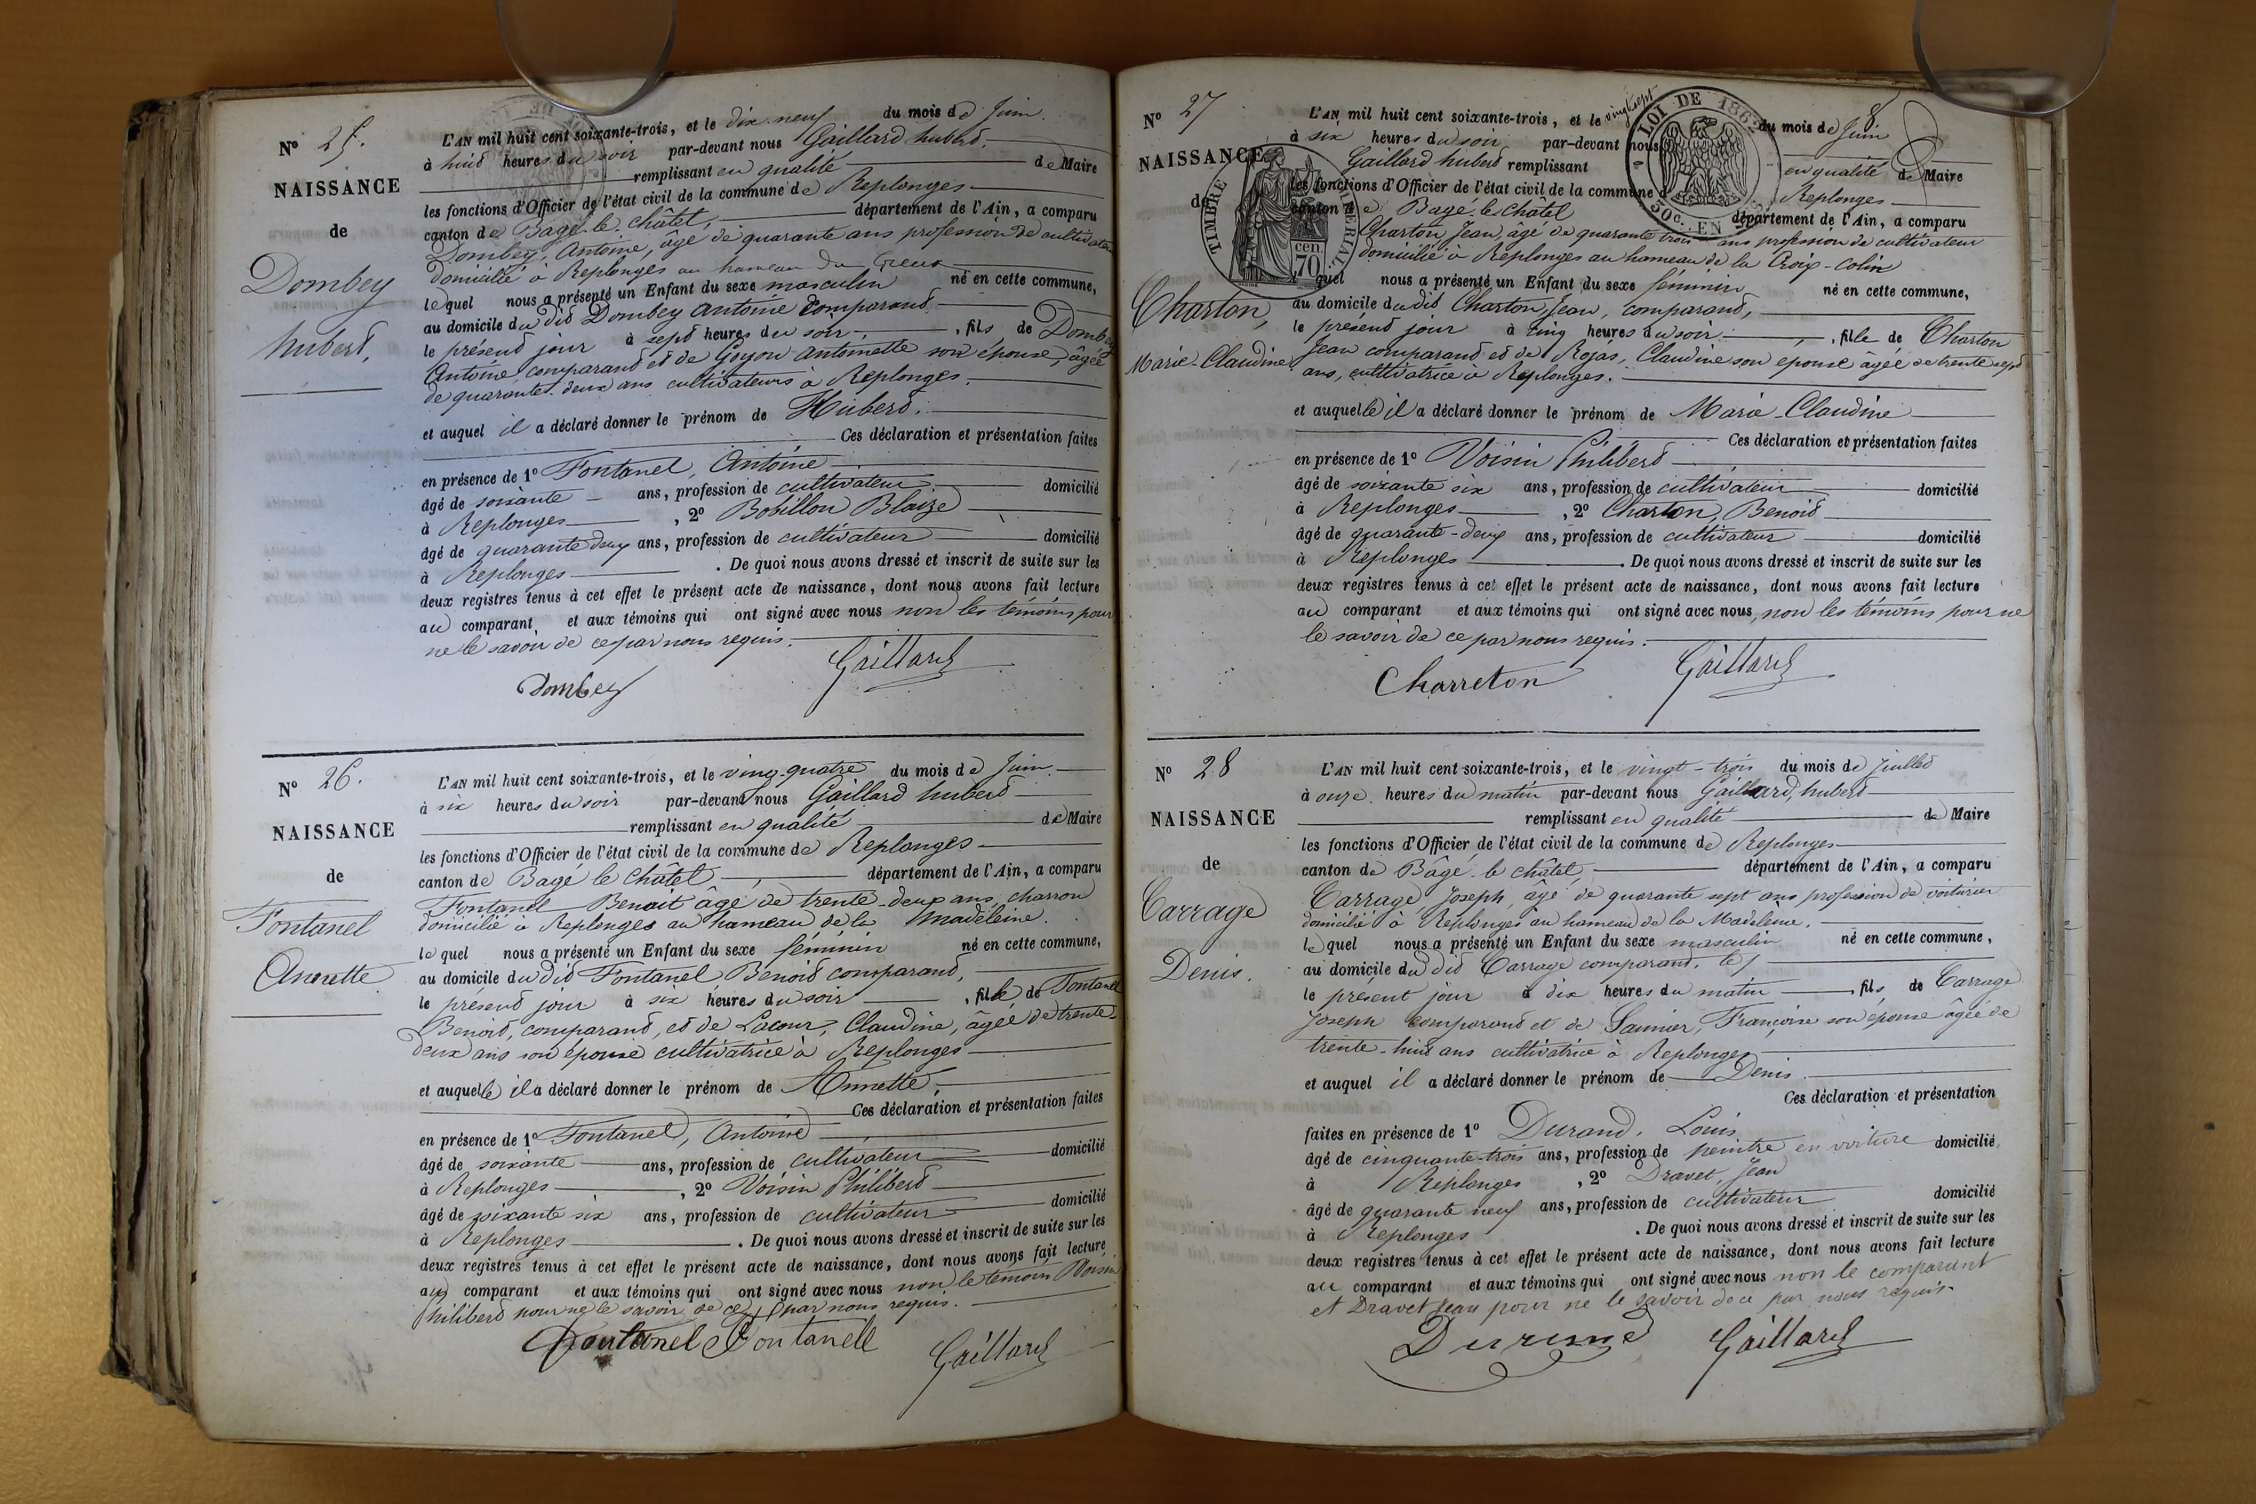 N° 25.
NAISSANCE
de
Dombey
hubert,
L'AN mil huit cent soixante-trois, et le dix neuf du mois de Juin.
à huit heures du soir par-devant nous Gaillard hubert.
remplissant en qualité de Maire
les fonctions d'Officier de l'état civil de la commune de Replonges
canton de Bagé-le-châtel, département de l'Ain, a comparu
Dombey, Antoine, âgé de quarante ans profession de cultivateur
domicilié à Replonges au hameau du Creux
le quel nous a présenté un Enfant du sexe masculin né en cette commune,
au domicile du dit Dombey Antoine comparant
le présent jour à sept heures du soir, fils de Dombey
Antoine comparant et de Goyon Antoinette son épouse, âgée
de quarante-deux ans cultivateurs à Replonges.
et auquel il a déclaré donner le prénom de Hubert.
Ces déclaration et présentation faites
en présence de 1° Fontanel, Antoine
âgé de soixante ans, profession de cultivateur domicilié
à Replonges, 2° Bobillon Blaize
âgé de quarante deux ans, profession de cultivateur domicilié
à Replonges. De quoi nous avons dressé et inscrit de suite sur les
deux registres tenus à cet effet le présent acte de naissance, dont nous avons fait lecture
au comparant et aux témoins qui ont signé avec nous non les témoins pour
ne le savoir de ce par nous requis.
Dombey Gaillard
N° 26.
NAISSANCE
de
Fontanel
Annette
L'AN mil huit cent soixante-trois, et le vingt-quatre du mois de Juin.
à six heures du soir par-devant nous Gaillard hubert
remplissant en qualité de Maire
les fonctions d'Officier de l'état civil de la commune de Replonges
canton de Bagé le châtel, département de l'Ain, a comparu
Fontanel Benoit âgé de trente-deux ans, charron
domicilié à Replonges au hameau de la Madeleine.
le quel nous a présenté un Enfant du sexe féminin né en cette commune,
au domicile du dit Fontanel Benoit comparant,
le présent jour à six heures du soir, fille de Fontanel
Benoit, comparant, et de Lacour, Claudine, âgée de trente-
deux ans son épouse cultivatrice à Replonges
et auquelle il a déclaré donner le prénom de Annette.
Ces déclaration et présentation faites
en présence de 1° Fontanel, Antoine
âgé de soixante ans, profession de cultivateur domicilié
à Replonges, 2° Voisin Philibert
âgé de soixante six ans, profession de cultivateur domicilié
à Replonges. De quoi nous avons dressé et inscrit de suite sur les
deux registres tenus à cet effet le présent acte de naissance, dont nous avons fait lecture
au comparant et aux témoins qui ont signé avec nous non le témoin Voisin
Philibert pour ne le savoir de ce par nous requis.
Fontanel Fontanell Gaillard
N° 27
NAISSANCE
de
Charton,
Marie-Claudine
TIMBRE IMPERIAL
cen
70
LOI DE 1862
50c. EN
8
L'AN mil huit cent soixante-trois, et le vingt sept du mois de Juin
à six heures du soir par-devant nous
Gaillard hubert remplissant en qualité de Maire
les fonctions d'Officier de l'état civil de la commune de Replonges
canton de Bagé-le-châtel département de l'Ain, a comparu
Charton, Jean, âgé de quarante trois ans profession de cultivateur
domicilié à Replonges au hameau de la Croix-Colin
quel nous a présenté un Enfant du sexe féminin né en cette commune,
au domicile du dit Charton, Jean, comparant,
le présent jour à cinq heures du soir, fille de Charton
Jean comparant et de Rojas, Claudine son épouse âgée de trente sept
ans, cultivatrice à Replonges.
et auquelle il a déclaré donner le prénom de Marie-Claudine
Ces déclaration et présentation faites
en présence de 1° Voisin Philibert
âgé de soixante six ans, profession de cultivateur domicilié
à Replonges, 2° Charton, Benoit
âgé de quarante-deux ans, profession de cultivateur domicilié
à Replonges. De quoi nous avons dressé et inscrit de suite sur les
deux registres tenus à cet effet le présent acte de naissance, dont nous avons fait lecture
au comparant et aux témoins qui ont signé avec nous, non les témoins pour ne
le savoir de ce par nous requis.
Charreton Gaillard
N° 28
NAISSANCE
de
Carrage
Denis.
L'AN mil huit cent soixante-trois, et le vingt-trois du mois de Juillet
à onze heures du matin par-devant nous Gaillard, hubert
remplissant en qualité de Maire
les fonctions d'Officier de l'état civil de la commune de Replonges
canton de Bâgé-le-châtel, département de l'Ain, a comparu
Carrage Joseph, âgé de quarante sept ans profession de voiturier
domicilié à Replonges au hameau de la Madeleine.
le quel nous a présenté un Enfant du sexe masculin né en cette commune,
au domicile du dit Carrage comparant.
le présent jour à dix heures du matin, fils de Carrage
Joseph comparant et de Saunier, Françoise son épouse âgée de
trente-huit ans cultivatrice à Replonges
et auquel il a déclaré donner le prénom de Denis.
Ces déclaration et présentation
faites en présence de 1° Durand, Louis
âgé de cinquante-trois ans, profession de peintre en voiture domicilié
à Replonges, 2° Dravet, Jean
âgé de quarante neuf ans, profession de cultivateur domicilié
à Replonges. De quoi nous avons dressé et inscrit de suite sur les
deux registres tenus à cet effet le présent acte de naissance, dont nous avons fait lecture
au comparant et aux témoins qui ont signé avec nous non le comparant
et Dravet Jean pour ne le savoir de ce par nous requis.
Durand Gaillard